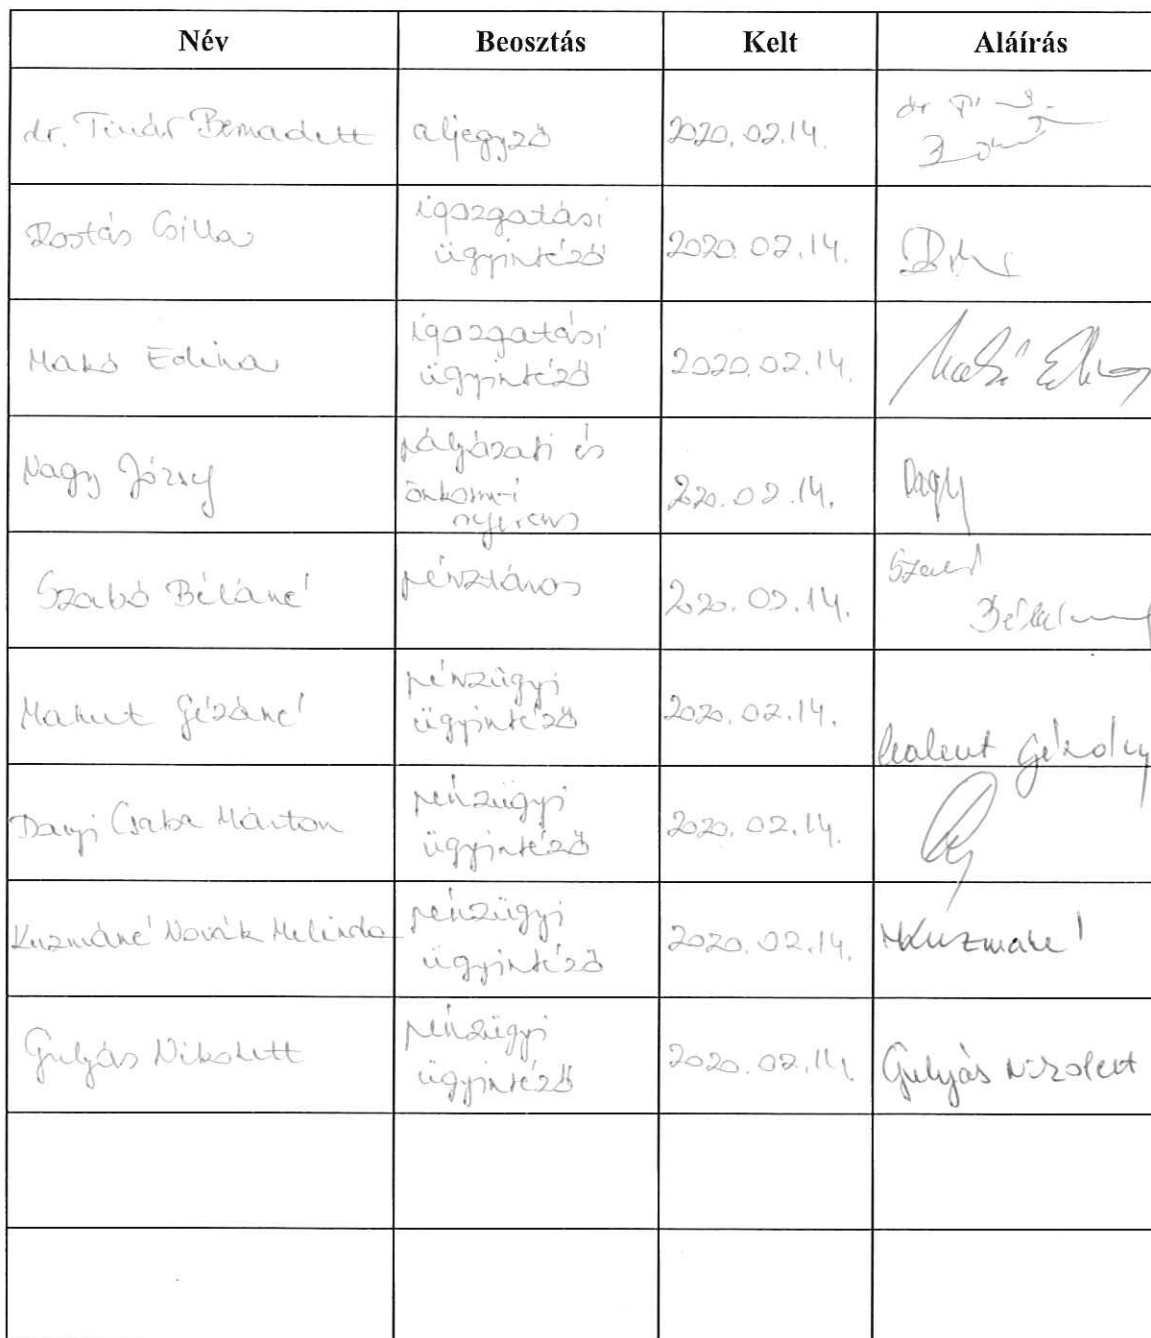 Név Beosztás Kelt Aláírás
dr. Tinár Bernadett aljegyző 2020.02.14. dr
Rostás Csilla igazgatási
ügyintéző 2020.02.14.
Makó Edina igazgatási
ügyintéző 2020.02.14. Makó
Nagy József pályázati és
önkorm-i
2020.02.14. Nagy
Szabó Béláné pénztáros 2020.02.14. Szabó
Makut Gézáné pénzügyi
ügyintéző 2020.02.14. Makut Gézáné
Danyi Csaba Márton pénzügyi
ügyintéző 2020.02.14.
Kuzmáné Novák Melinda pénzügyi
ügyintéző 2020.02.14. Kuzmáné
Gulyás Nikolett pénzügyi
ügyintéző 2020.02.14. Gulyás Nikolett